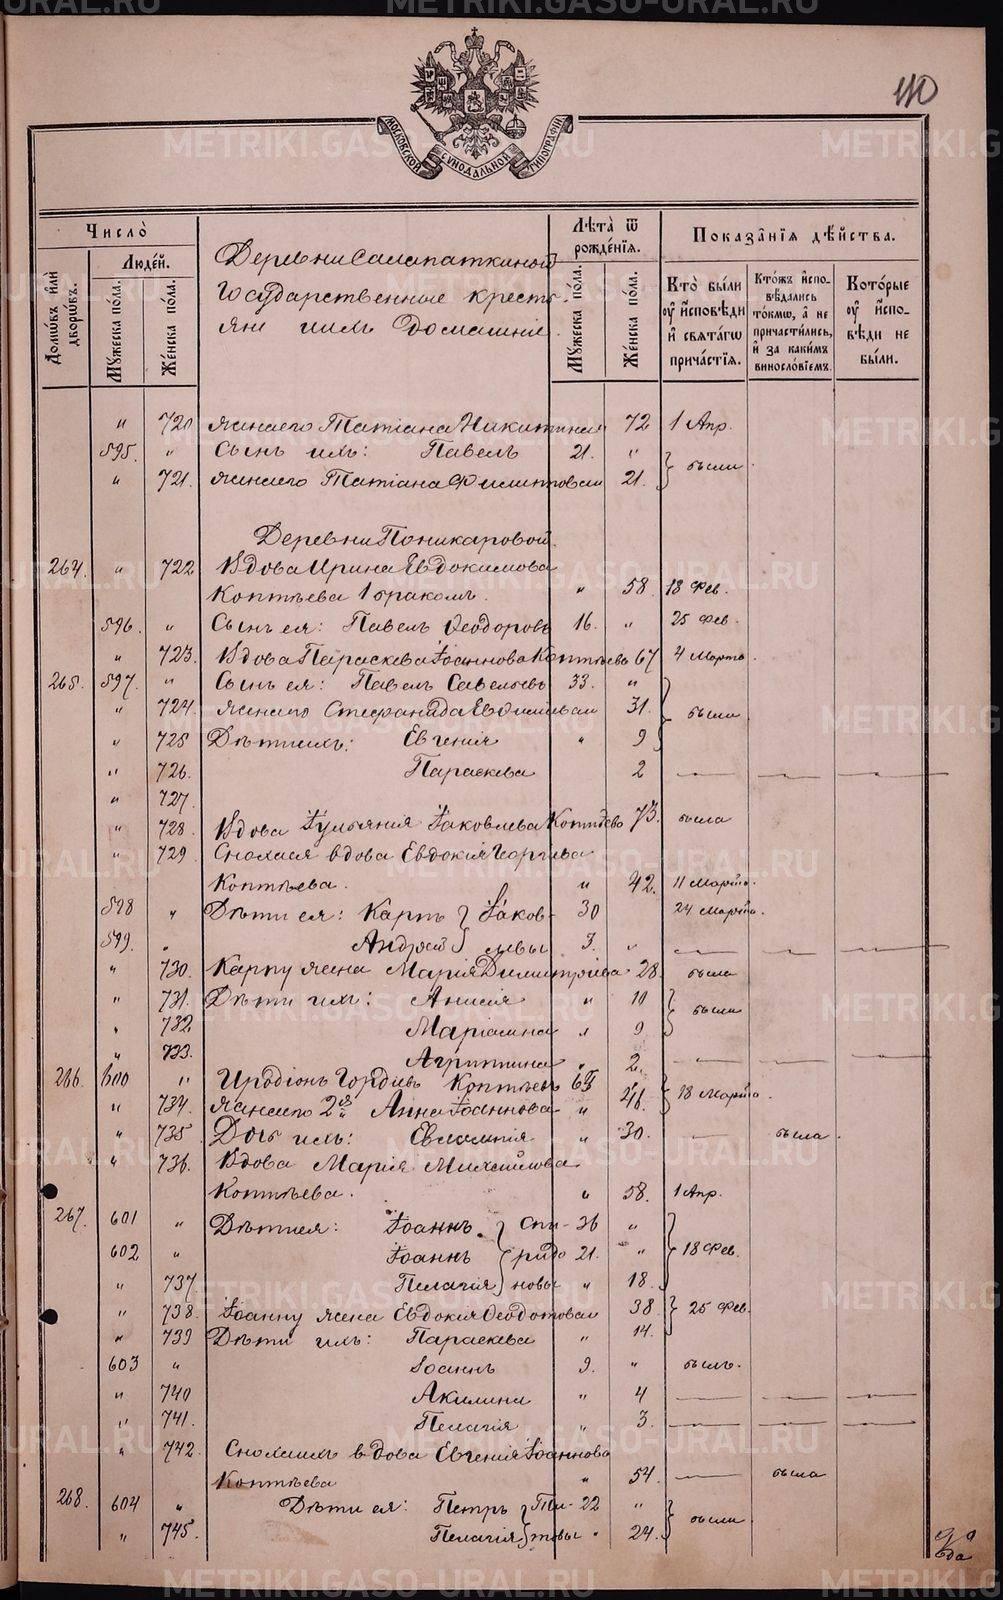 110
МОСКОВСКОЙ СѴНОДАЛЬНОЙ ТИПОГРАФІИ
Число̀
Домѡ́въ и҆лѝ дворѡ́въ.
Люде́й.
Мꙋ́жеска по́ла.
Же́нска по́ла.
Деревни Салапаткиной
Государственные кресть-
яне и имъ домашніе
Лѣ́та ѿ рожде́нїѧ.
Мꙋ́жеска по́ла.
Же́нска по́ла.
Показа́нїѧ дѣ́йства.
Кто̀ бы́ли ᲂу҆ и҆сповѣди и҆ свѧта́гѡ прича́стїѧ.
Кто́жъ и҆сповѣдались то́кмѡ, а҆ не причасти́лись, и҆ за каки́мъ винослові́емъ.
Кото́рые ᲂу҆ и҆сповѣди не бы́ли.
" 720 жена его Татіана Никитина 72 1 Апр.
595. " Сынъ ихъ: Павелъ 21. " были
" 721. жена его Татіана Филиппова 21.
Деревни Поникаровой.
264. " 722 Вдова Ирина Евдокимова
Коптѣева 1 бракомъ. " 58. 18 Фев.
596. " Сынъ ея: Павелъ Ѳеодоровъ 16. " 25 Фев.
" 723. Вдова Параскева Іоаннова Коптѣева 67 4 Марта
265. 597. " Сынъ ея: Павелъ Савельевъ 33. "
" 724. жена его Стефанида 31. были
" 725 Дѣти ихъ: Евгенія " 9
" 726. Параскева 2
" 727.
" 728. Вдова Іульянія Іаковлева Коптѣева 73. была
" 729 Сноха ея вдова Евдокія Георгіева
Коптѣева. " 42. 11 Марта.
598 " Дѣти ея: Карпъ Іаков- 30 24 Марта.
599. " Андрей левы 3. "
" 730. Карпу жена Марія Димитріева 28. была
" 731. Дѣти ихъ: Анисія " 10 были
" 732 Маріамна " 9
" 733. Агриппина " 2.
266. 600 " Иродіонъ Гордіевъ Коптѣевъ 65
" 734. жена его 2я Анна Іоаннова " 46. 18 Марта.
" 735 Дочь ихъ: Евлампія " 30. была.
" 736. Вдова Марія Михайлова
Коптѣева. " 58. 1 Апр.
267. 601 " Дѣти ея: Іоаннъ. Спи- 36 "
602 " Іоаннъ ридо 21. " 18 Фев.
" 737 Пелагія новы " 18.
" 738. Іоанну жена Евдокія Ѳеодотова 38 25 Фев.
" 739 Дѣти ихъ: Параскева " 14.
603 " Іоаннъ 9. " былъ.
" 740 Акилина " 4
" 741. Пелагія " 3.
" 742. Сноха ихъ вдова Евгенія Іоаннова
Коптѣева " 54. была
268. 604 " Дѣти ея: Петръ Ти- 22 "
" 745. Пелагія товы " 24. были
METRIKI.GASO-URAL.RU